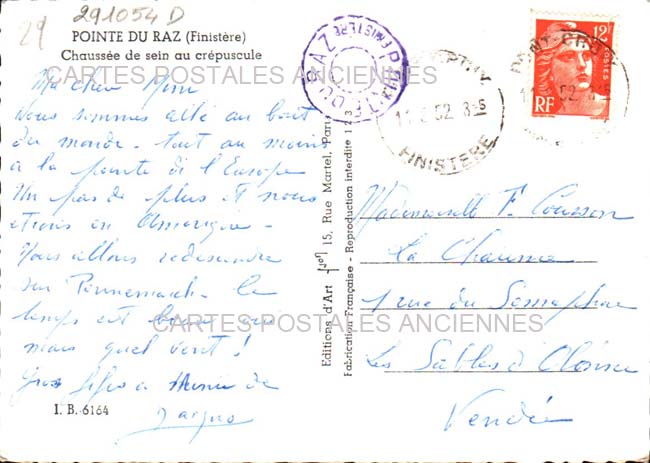 29
291054 D
POINTE DU RAZ (Finistère)
Chaussée de sein au crépuscule
CARTES POSTALES ANCIENNES
Ma chère Mimi
Nous sommes allé au bout
du monde - tout au moins
a la pointe de l'Europe
Un pas de plus et nous
étions en Amérique -
Nous allons redescendre
sur Penmarch - le
temps est beau
mais quel vent !
Gros
de
I. B. 6164
Editions d'Art "Jos" 15, Rue Martel, Paris
Fabrication Française - Reproduction interdite 1 2 3
POINTE DU RAZ
FINISTERE
PONT-CROIX
FINISTERE
52
12F
POSTES
RF
Mademoiselle F. Cousson
La Chaume
1 rue du Sémaphore
Les Sables d'Olonne
Vendée
CARTES POSTALES ANCIENNES